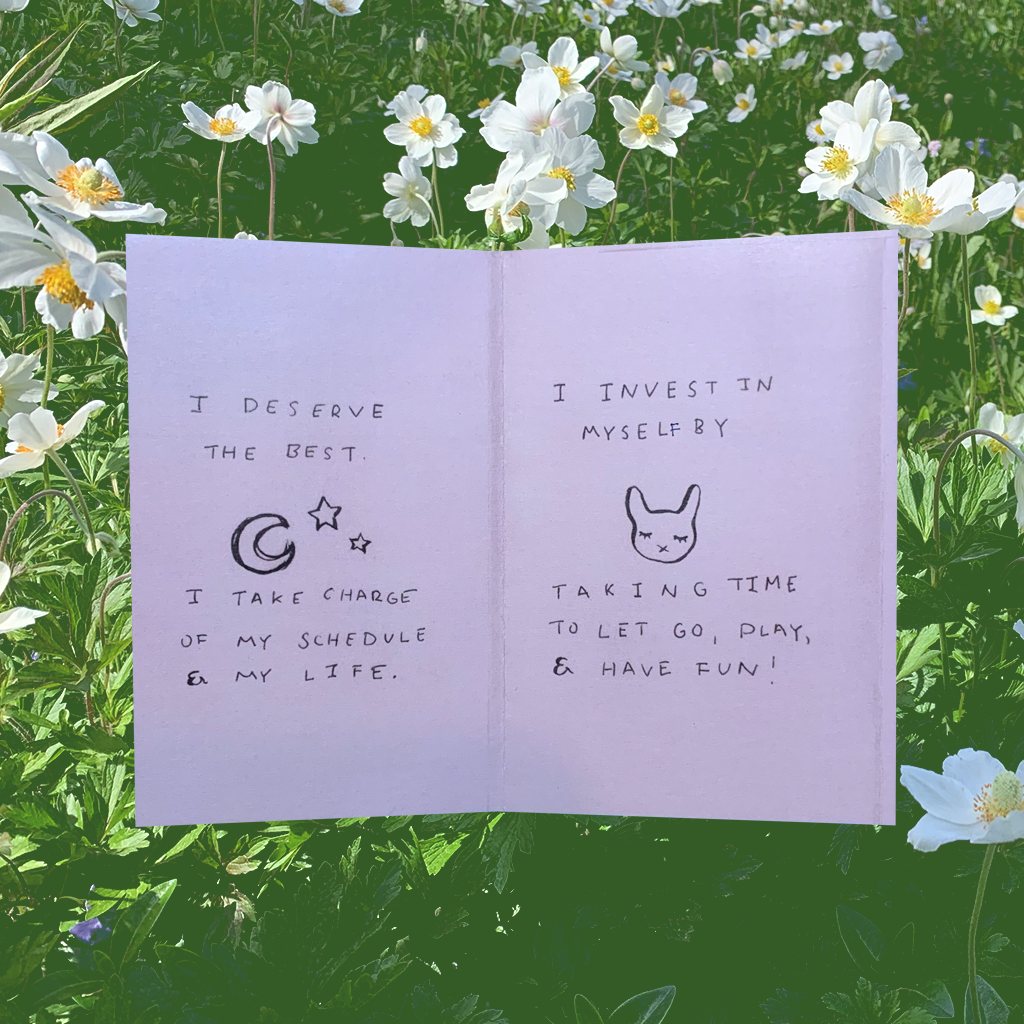 I DESERVE
THE BEST.
I TAKE CHARGE
OF MY SCHEDULE
& MY LIFE.
I INVEST IN
MYSELF BY
TAKING TIME
TO LET GO, PLAY,
& HAVE FUN!